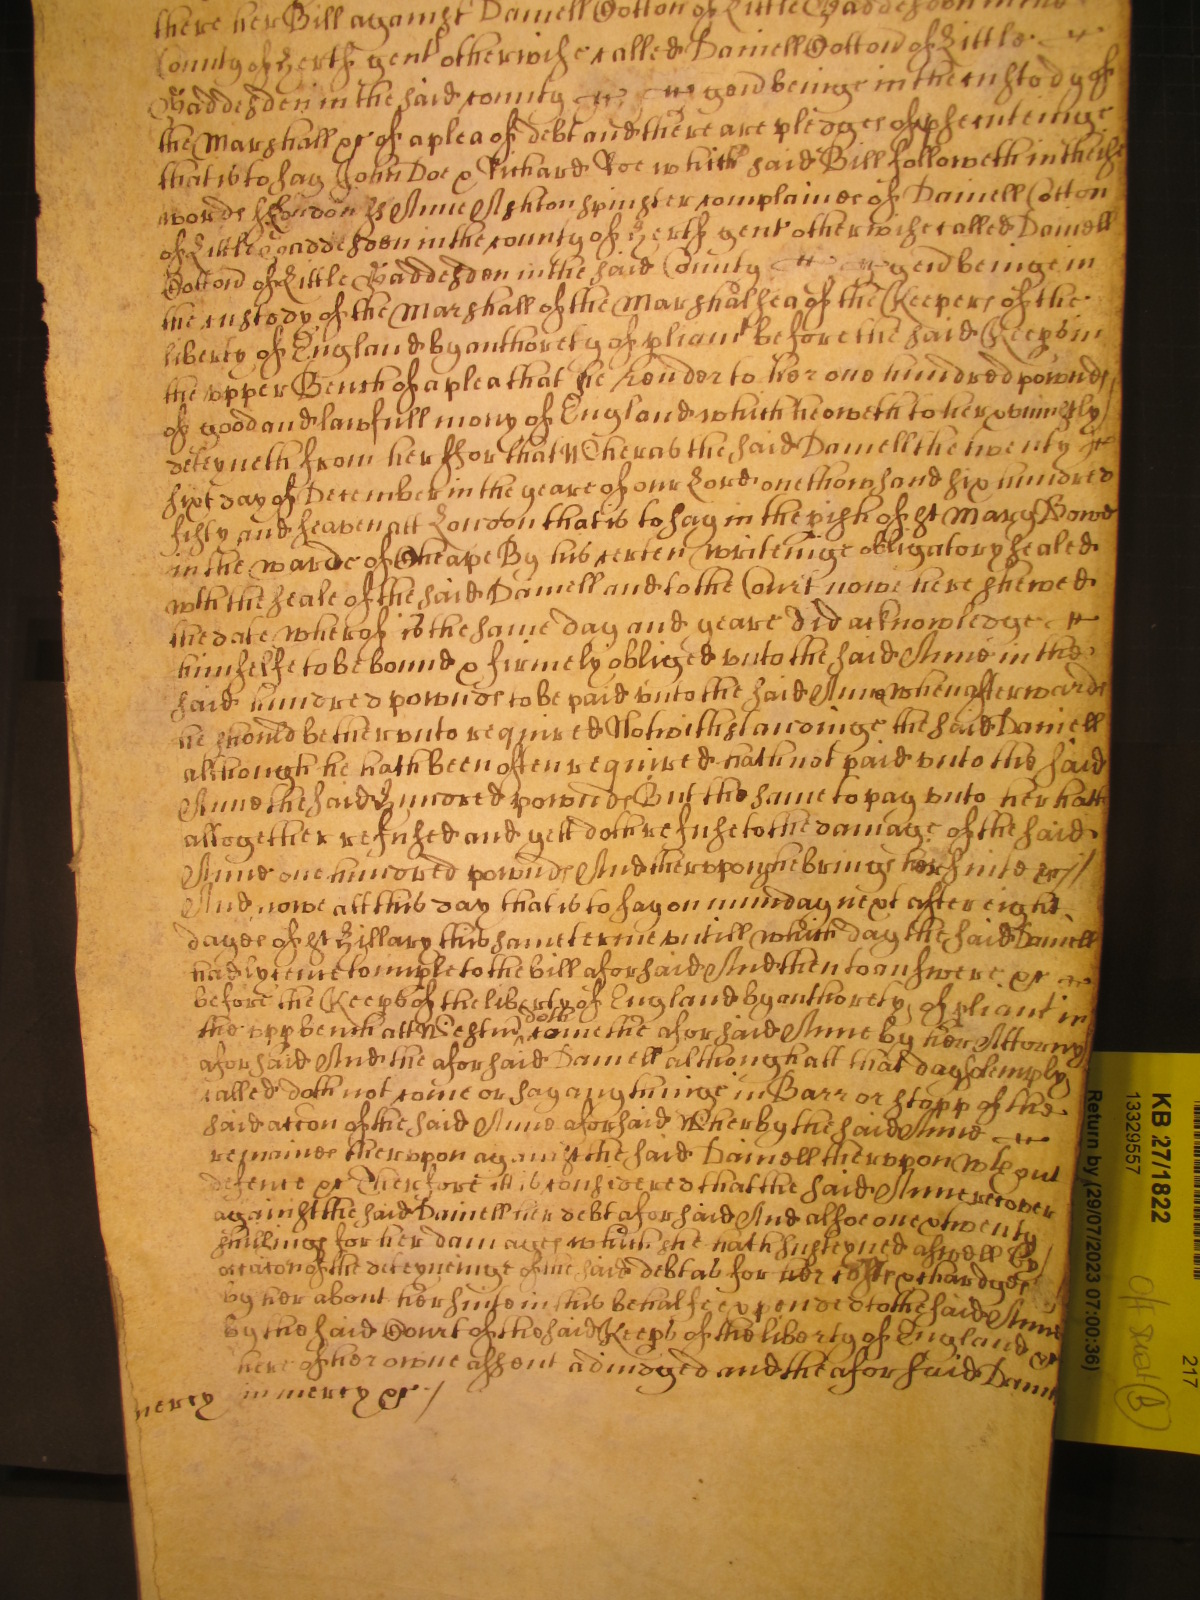 there her Bill against Daniell Cotton of Little Gaddesden in the
County of Hertf gent otherwise called Daniell Cotton of Little
Gaddesden in the said county gend beinge in the custody of
the Marshall &c of a plea of debt and there are pledges of prsecuteinge
that is to say John Doe & Richard Roe which said Bill followeth in theise
words ss London ss Anne Ashton spinster complaines of Daniell Cotton
of Little Gaddesden in the county of Hertf gent otherwise called Daniell
Cotton of Little Gaddesden in the said County gend beinge in
the custody of the Marshall of the Marshalsea of the Keepers of the
liberty of England by authorety of pliamt before the said Keeps in
the upper Bench of a plea that he render to her one hundred pownds
of good and lawfull mony of England which he oweth to her & uniustly
deteyneth from her ffor that Wheras the said Daniell the twenty
sixt day of December in the yeare of our Lord one thowsand six hundred
fifty and seaven att London that is to say in the pish of St Mary Bowe
in the warde of Cheape By his certen writeinge obligatory sealed
wth the seale of the said Daniell and to the Court nowe here shewed
the date wherof is the same day and yeare did acknowledge
himselfe to be bound & firmely obliged unto the said Anne in the
said hundred pownds to be paid unto the said Anne when afterwards
he should be therunto required Notwithstandinge the said Daniell
although he hath been often required hath not paid unto the said
Anne the said Hundred pownds But the same to pay unto her hath
altogether refused and yett doth refuse to the damage of the said
Anne one hundred pownds And therupon she brings her suite &c //
And nowe att this day that is to say on munday next after eight
dayes of St Hillary this same terme untill which day the said Daniell
had lycence to imple to the bill aforsaid And then to answere &c
before the Keeps of the liberty of England by authorety of pliamt in
the upp bench att Westm doth come the aforsaid Anne by her Attorny
aforsaid And the aforsaid Daniell although att that day solemply
called doth not come or say any thinge in Barr or stopp of the
said accon of the said Anne aforsaid Wherby the said Anne
remaines therupon against the said Daniell therupon wthout
defence &c Therfore itt is considered that the said Anne recover
against the said Daniell her debt aforsaid And alsoe one & twenty
shillings for her damages which she hath susteyned aswell by
occacon of the deteyneinge of the said debt as for her costs & chardges
by her about her suite in this behalfe expended to the said Anne
by the said Court of the said Keeps of the liberty of England &c
here of her owne assent adiudged and the aforsaid Dani
mercy in mercy &c /
KB 27/1822
13329557
Return by (29/07/2023 07:00:36)
217